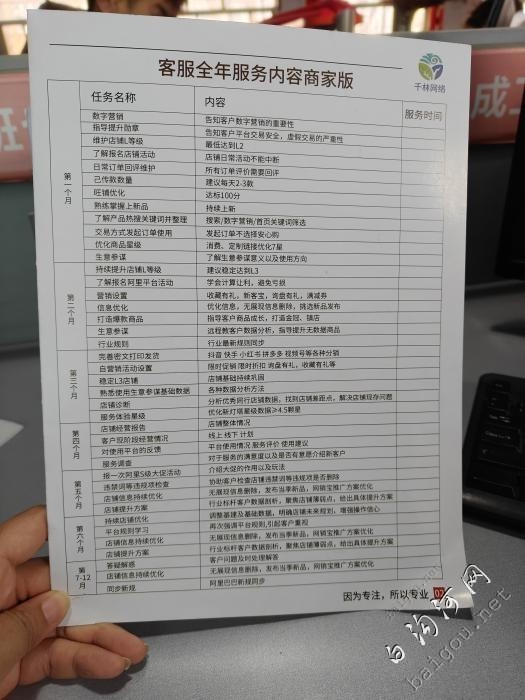 千林网络
客服全年服务内容商家版
任务名称 内容 服务时间
第一个月
数字营销 告知客户数字营销的重要性
指导提升勋章 告知客户平台交易安全，虚假交易的严重性
维护店铺L等级 最低达到L2
了解报名店铺活动 店铺日常活动不能中断
日常订单回评维护 所有订单评价需要回评
己传款数量 建议每天2-3款
旺铺优化 达标100分
熟练掌握上新品 持续上新
了解产品热搜关键词并整理 搜索/数字营销/首页关键词筛选
交易方式发起订单使用 发起订单不选择安心购
优化商品星级 消费、定制链接优化7星
生意参谋 了解生意参谋意义以及使用方向
第二个月
持续提升店铺L等级 建议稳定达到L3
了解报名阿里平台活动 学会计算让利，避免亏损
营销设置 收藏有礼，新客宝，询盘有礼，满减券
信息优化 优化信息，无展现信息删除，挑选新品发布
打造爆款商品 指导客户商品成长，打造金冠、镇店
生意参谋 远程教客户数据分析，指导提升无数据商品
行业规则 行业最新规则同步
第三个月
完善密文打印发货 抖音 快手 小红书 拼多多 视频号等各种分销
自营销活动设置 限时促销 限时折扣 询盘有礼，收藏有礼等
稳定L3店铺 店铺基础持续巩固
熟悉使用生意参谋基础数据 各种数据分析方法
店铺诊断 分析优秀同行店铺数据，找到店铺差距点，解决店铺现存问题
服务体验星级 优化新灯塔星级数据≥4.5颗星
第四个月
店铺经营报告 店铺整体情况
客户现阶段经营情况 线上 线下 计划
对使用平台的反馈 平台使用情况 服务评价 使用建议
服务调查 对于服务的满意度以及是否有意愿介绍新客户
第五个月
报一次阿里S级大促活动 介绍大促的作用以及玩法
违禁词等违规项检查 协助客户检查店铺违禁词等违规项是否删除
店铺信息持续优化 无展现信息删除，发布当季新品，网销宝推广方案优化
店铺提升方案 行业标杆客户数据剖析，聚焦店铺薄弱点，给出具体提升方案
第六个月
持续店铺优化 调整基建及基础数据，明确店铺未来规划，增强操作信心
平台规则学习 再次强调平台规则,引起客户重视
店铺信息持续优化 无展现信息删除，发布当季新品，网销宝推广方案优化
店铺提升方案 行业标杆客户数据剖析，聚焦店铺薄弱点，给出具体提升方案
第7-12月
答疑解惑 客户问题及时处理解答
店铺信息持续优化 无展现信息删除，发布当季新品，网销宝推广方案优化
同步新规 阿里巴巴新规同步
因为专注，所以专业 02
白沟河网
baigou.net